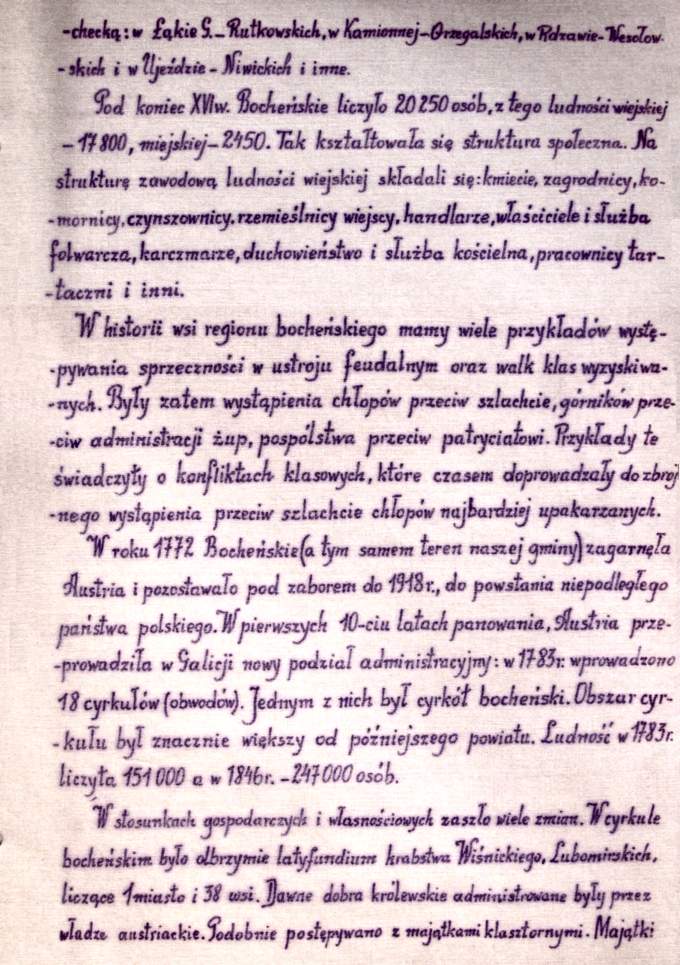 -checką: w Łąkie G.- Rutkowskich, w Kamionnej-Orzegalskich, w Rdzawie-Wesołow-
-skich i w Ujeździe - Niwickich i inne.
Pod koniec XVI w. Bocheńskie liczyło 20 250 osób, z tego ludności wiejskiej
- 17 800, miejskiej - 2450. Tak kształtowała się struktura społeczna. Na
strukturę zawodową ludności wiejskiej składali się: kmiecie, zagrodnicy, ko-
-mornicy, czynszownicy. rzemieślnicy wiejscy, handlarze, właściciele i służba
folwarcza, karczmarze, duchowieństwo i służba kościelna, pracownicy tar-
-taczni i inni.
W historii wsi regionu bocheńskiego mamy wiele przykładów wystę-
-pywania sprzeczności w ustroju feudalnym oraz walk klas wyzyskiwa-
-nych. Były zatem wystąpienia chłopów przeciw szlachcie, górników prze-
-ciw administracji żup, pospólstwa przeciw patryciatowi. Przykłady te
świadczyły o konfliktach klasowych, które czasem doprowadzały do zbroj-
-nego wystąpienia przeciw szlachcie chłopów najbardziej upakarzanych.
W roku 1772 Bocheńskie (a tym samem teren naszej gminy) zagarnęła
Austria i pozostawało pod zaborem do 1918 r., do powstania niepodległego
państwa polskiego. W pierwszych 10-ciu latach panowania, Austria prze-
-prowadziła w Galicji nowy podział administracyjny: w 1783r. wprowadzono
18 cyrkułów (obwodów). Jednym z nich był cyrkół bocheński. Obszar cyr-
-kułu był znacznie większy od późniejszego powiatu. Ludność w 1783r.
liczyła 151 000 a w 1846r. - 247 000 osób.
W stosunkach gospodarczych i własnościowych zaszło wiele zmian. W cyrkule
bocheńskim było olbrzymie latyfundium hrabstwa Wiśnickiego, Lubomirskich,
liczące 1 miasto i 38 wsi. Dawne dobra królewskie administrowane były przez
władze austriackie. Podobnie postępywano z majątkami klasztornymi. Majątki